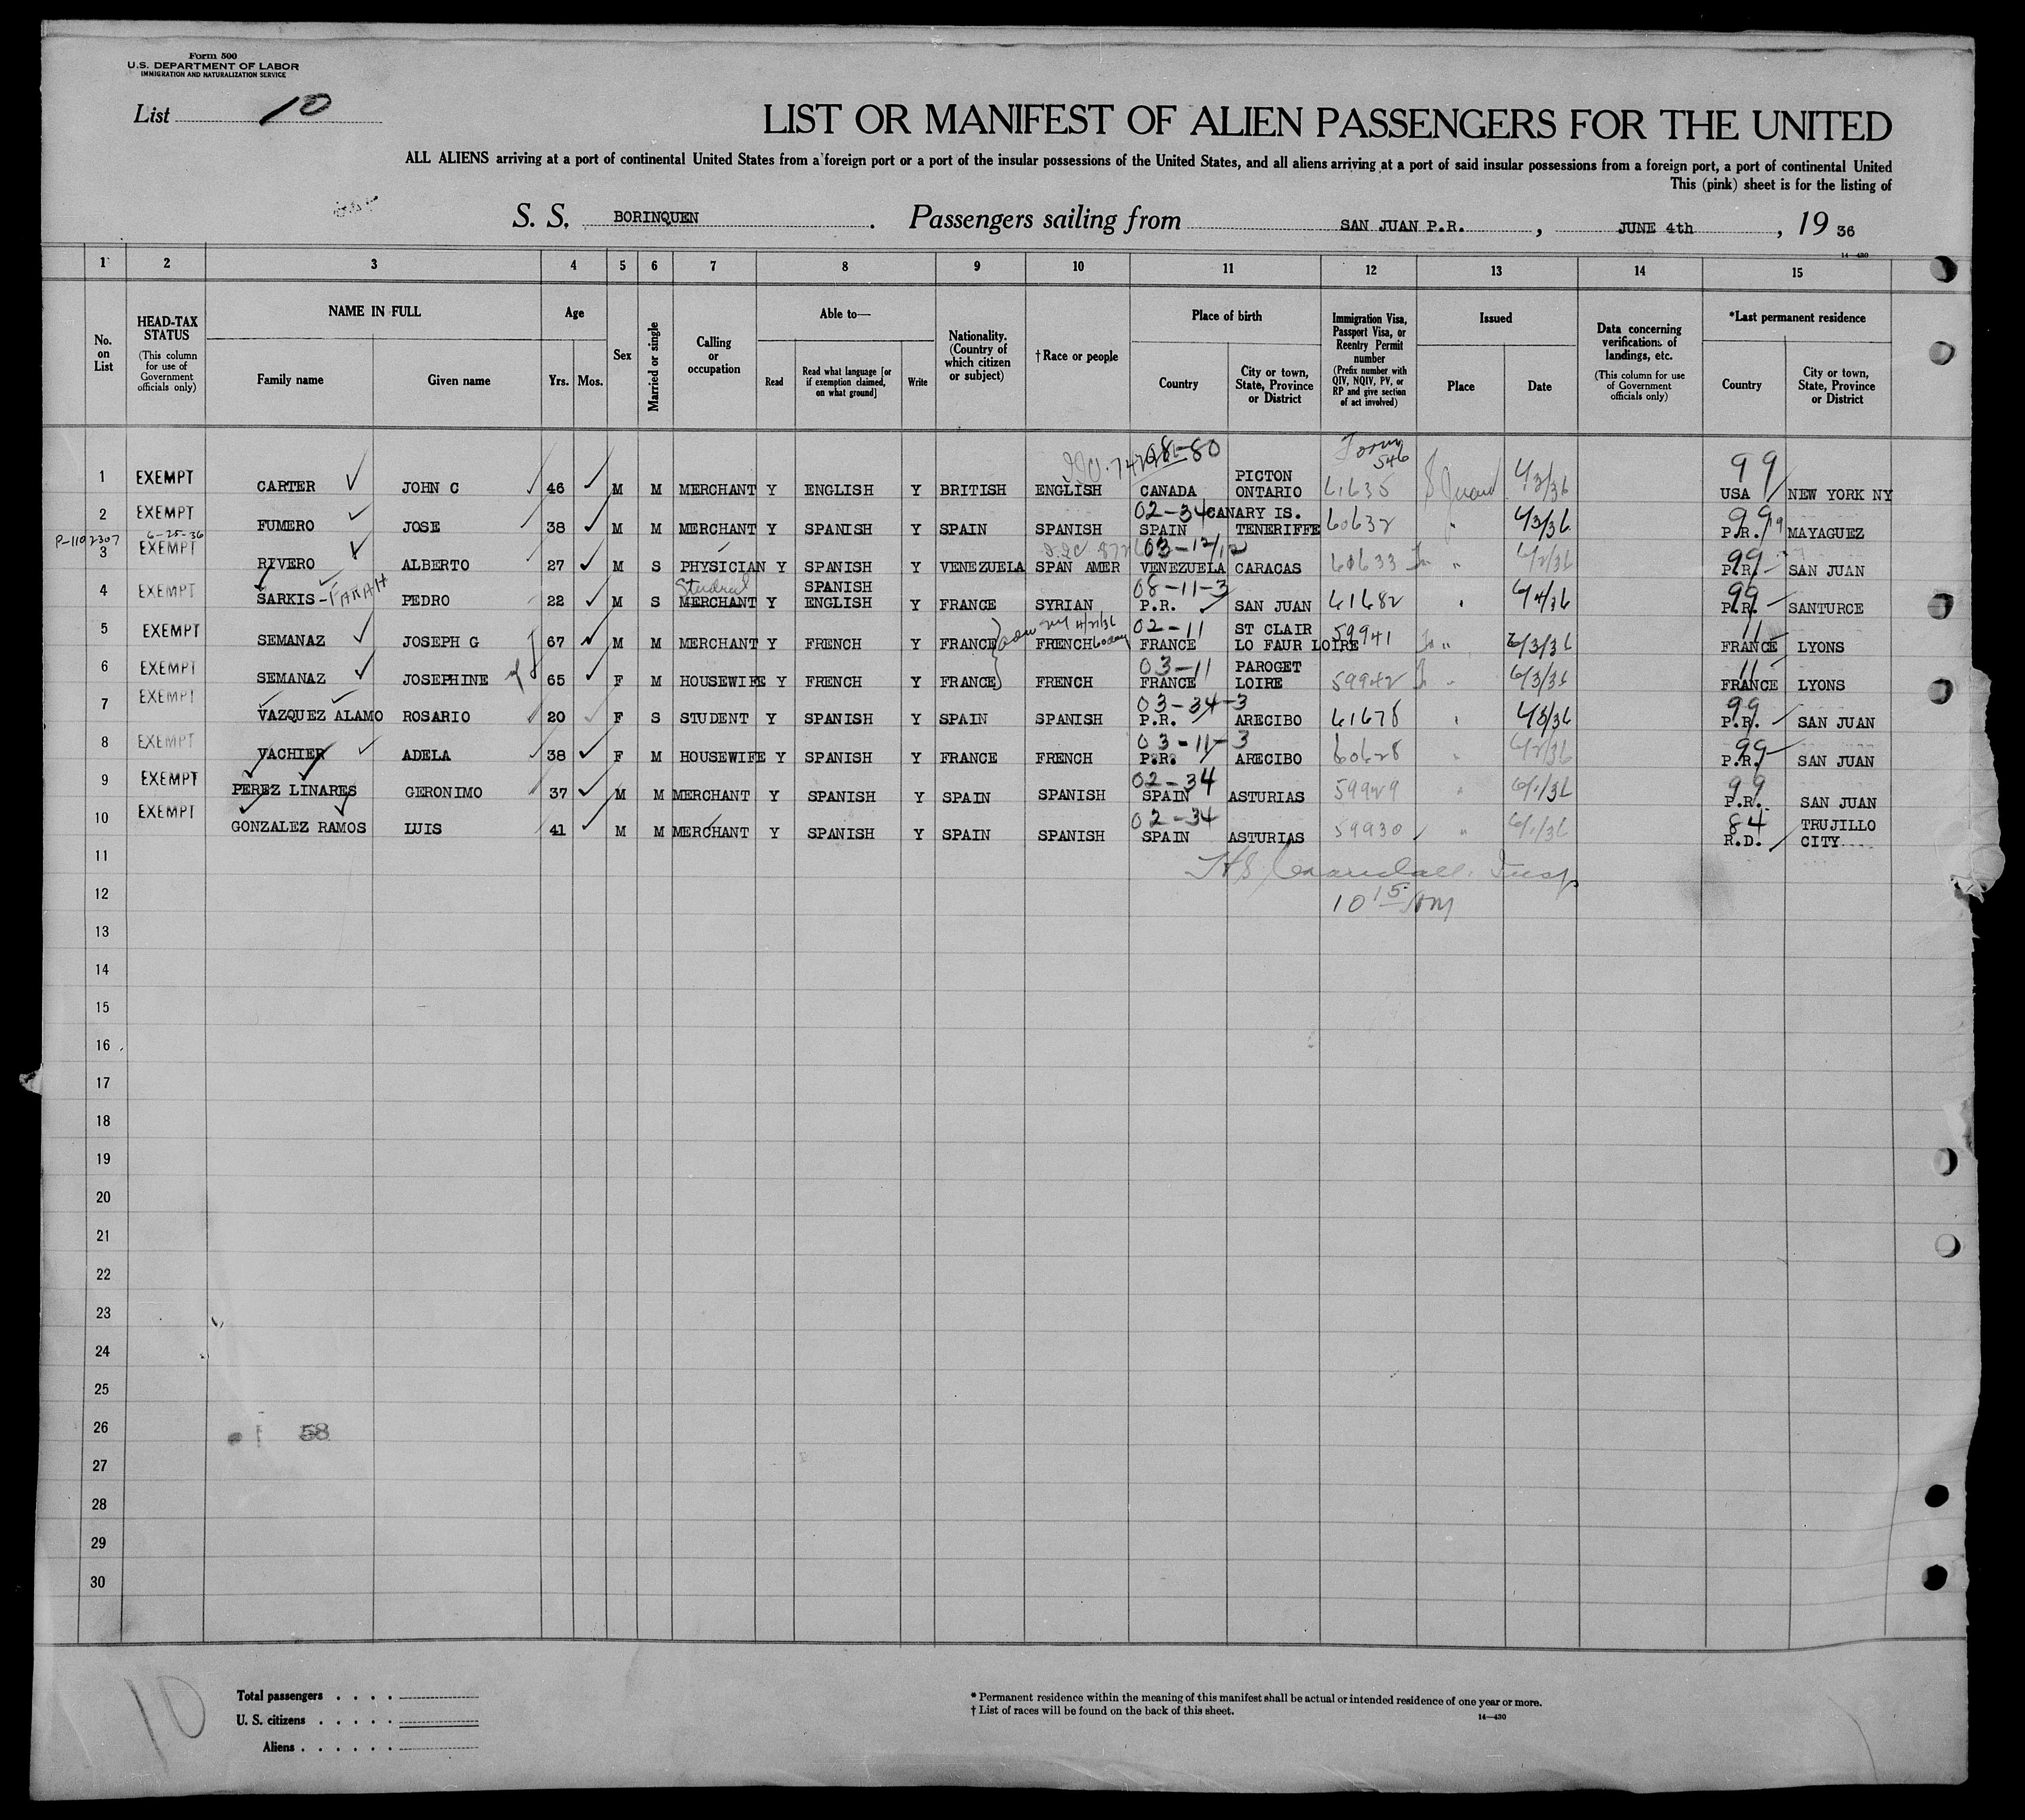 Form 500
U.S. DEPARTMENT OF LABOR
IMMIGRATION AND NATURALIZATION SERVICE
List 10
LIST OR MANIFEST OF ALIEN PASSENGERS FOR THE UNITED
ALL ALIENS arriving at a port of continental United States from a foreign port or a port of the insular possessions of the United States, and all aliens arriving at a port of said insular possessions from a foreign port, a port of continental United
This (pink) sheet is for the listing of
S. S. BORINQUEN . Passengers sailing from SAN JUAN P.R. , JUNE 4th , 19 36
14-430
1 2 3 4 5 6 7 8 9 10 11 12 13 14 15
No. on List
HEAD-TAX STATUS (This column for use of Government officials only)
NAME IN FULL
Family name Given name
Age
Yrs. Mos.
Sex
Married or single
Calling or occupation
Able to—
Read Read what language [or if exemption claimed, on what ground] Write
Nationality. (Country of which citizen or subject)
† Race or people
Place of birth
Country City or town, State, Province or District
Immigration Visa, Passport Visa, or Reentry Permit number (Prefix number with QIV, NQIV, PV, or RP and give section of act involved)
Issued
Place Date
Data concerning verifications of landings, etc. (This column for use of Government officials only)
*Last permanent residence
Country City or town, State, Province or District
Form 546
1 EXEMPT CARTER JOHN C 46 M M MERCHANT Y ENGLISH Y BRITISH ENGLISH CANADA PICTON ONTARIO 61635 S Juan 6/3/36 99 USA NEW YORK NY
2 EXEMPT FUMERO JOSE 38 M M MERCHANT Y SPANISH Y SPAIN SPANISH 02-34 SPAIN CANARY IS. TENERIFFE 60632 " 6/3/36 99 P.R. MAYAGUEZ
P-1102307 6-25-36
3 EXEMPT RIVERO ALBERTO 27 M S PHYSICIAN Y SPANISH Y VENEZUELA SPAN AMER 03-12/12 VENEZUELA CARACAS 60633 " 6/2/36 99 P.R. SAN JUAN
4 EXEMPT SARKIS-FARAH PEDRO 22 M S Student MERCHANT Y SPANISH ENGLISH Y FRANCE SYRIAN 08-11-3 P.R. SAN JUAN 61682 " 6/4/36 99 P.R. SANTURCE
5 EXEMPT SEMANAZ JOSEPH G 67 M M MERCHANT Y FRENCH Y FRANCE FRENCH 4/21/36 60 days 02-11 FRANCE ST CLAIR LO FAUR LOIRE 59941 " 6/3/36 11 FRANCE LYONS
6 EXEMPT SEMANAZ JOSEPHINE 65 F M HOUSEWIFE Y FRENCH Y FRANCE FRENCH 03-11 FRANCE PAROGET LOIRE 59942 " 6/3/36 11 FRANCE LYONS
7 EXEMPT VAZQUEZ ALAMO ROSARIO 20 F S STUDENT Y SPANISH Y SPAIN SPANISH 03-34-3 P.R. ARECIBO 61678 " 6/3/36 99 P.R. SAN JUAN
8 EXEMPT VACHIER ADELA 38 F M HOUSEWIFE Y SPANISH Y FRANCE FRENCH 03-11-3 P.R. ARECIBO 60628 " 6/2/36 99 P.R. SAN JUAN
9 EXEMPT PEREZ LINARES GERONIMO 37 M M MERCHANT Y SPANISH Y SPAIN SPANISH 02-34 SPAIN ASTURIAS 59929 " 6/1/36 99 P.R. SAN JUAN
10 EXEMPT GONZALEZ RAMOS LUIS 41 M M MERCHANT Y SPANISH Y SPAIN SPANISH 02-34 SPAIN ASTURIAS 59930 " 6/1/36 84 R.D. TRUJILLO CITY
11
12
10 15 AM
13
14
15
16
17
18
19
20
21
22
23
24
25
26
58
27
28
29
30
10
Total passengers
U. S. citizens
Aliens
* Permanent residence within the meaning of this manifest shall be actual or intended residence of one year or more.
† List of races will be found on the back of this sheet.
14—430